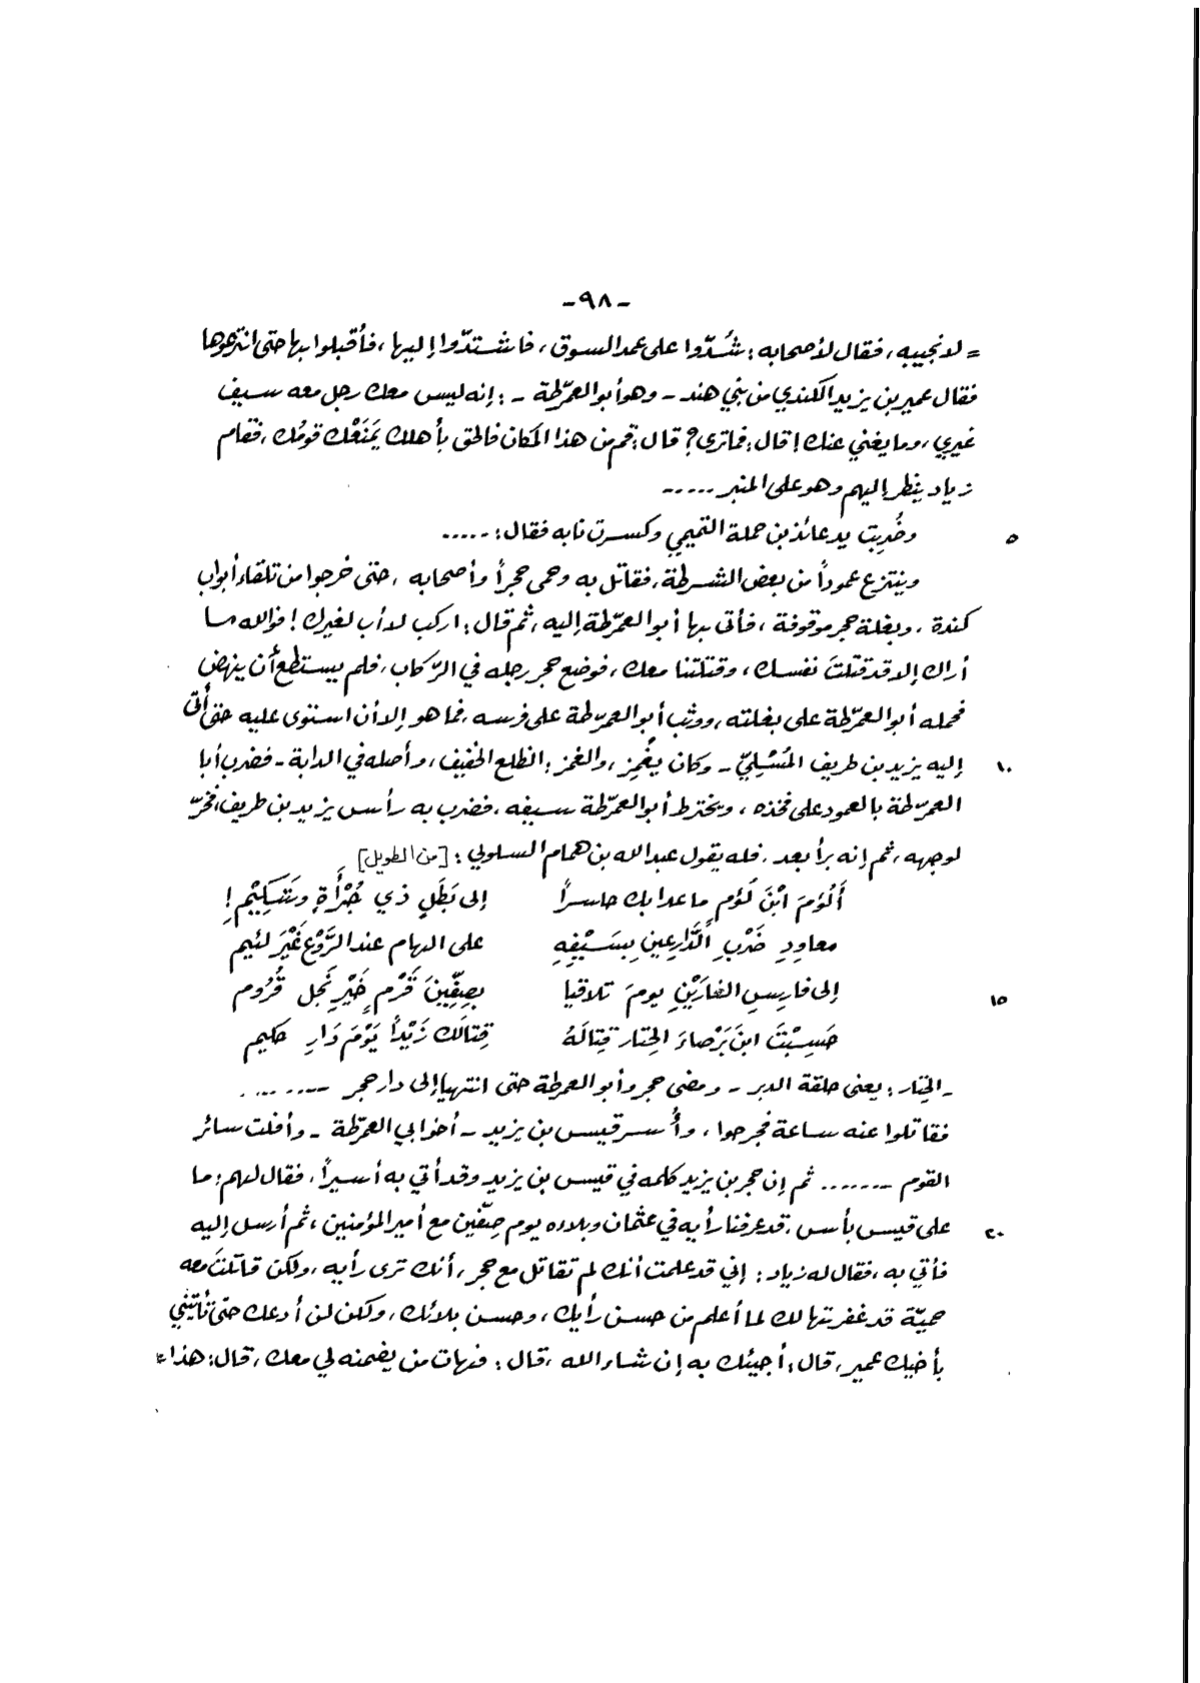 -٩٨-
= لا نجيبه، فقال لأصحابه: شُدّوا على عمد السوق، فاشتدّوا إليها، فأقبلوا بها حتى انتزعوها
فقال عمير بن يزيد الكندي من بني هند - وهو أبو العمرّطة -: إنه ليس معك رجل معه سيف
غيري، وما يغني عنك! قال: فما ترى؟ قال: قم من هذا المكان فالحق بأهلك يَمْنَعْك قومُك، فقام
زياد ينظر إليهم وهو على المنبر .....
٥ وضُرِبت يد عائذ بن حملة التميمي وكسرت نابه فقال: .....
وينتزع عموداً من بعض الشرطة، فقاتل به وحمى حجراً وأصحابه، حتى خرجوا من تلقاء أبواب
كندة، وبغلة حجر موقوفة، فأتى بها أبو العمرّطة إليه، ثم قال: اركب لا أب لغيرك! فوالله ما
أراك إلا قد قتلتَ نفسك، وقتلتنا معك، فوضع حجر رجله في الرّكاب، فلم يستطع أن ينهض
فحمله أبو العمرّطة على بغلته، ووثب أبو العمرّطة على فرسه، فما هو إلا أن استوى عليه حتى أتى
١٠ إليه يزيد بن طريف المُسْلِيّ - وكان يغمِز، والغمز: الظلع الخفيف، وأصله في الدابة - فضرب أبا
العمرّطة بالعمود على فخذه، ويخترط أبو العمرّطة سيفه، فضرب به رأس يزيد بن طريف، فخرّ
لوجهه، ثم إنه برأ بعد، فله يقول عبد الله بن همام السلولي: [من الطويل]
أَلُؤمَ ابْنَ لُؤم ما عدا بك حاسراً إلى بَطَلٍ ذي جُرْأَةٍ وشَكِيْمِ!
معاودِ ضَرْبِ الدَّارعينِ بِسَيْفِهِ على الهام عند الرَّوْعِ غَيْرَ لئيم
١٥ إلى فارِسِ الغارَيْنِ يومَ تلاقيا بصِفِّينَ قَرْمٍ خَيْرِ نَجل قُرُوم
حَسِبْتَ ابنَ بَرْصاءَ الحِتار قِتالَهُ قِتالَك زَيْداً يَوْمَ دَارِ حكيم
- الحِتار: يعني حلقة الدبر - ومضى حجر وأبو العمرطة حتى انتهيا إلى دار حجر .........
فقاتلوا عنه ساعة فجرحوا، وأُسر قيس بن يزيد - أخو أبي العمرّطة - وأفلت سائر
القوم ....... ثم إن حجر بن يزيد كلمه في قيس بن يزيد وقد أتي به أسيراً، فقال لهم: ما
٢٠ على قيس بأس، قد عرفنا رأيه في عثمان وبلاءه يوم صِفّين مع أمير المؤمنين، ثم أرسل إليه
فأتي به، فقال له زياد: إني قد علمت أنك لم تقاتل مع حجر، أنك ترى رأيه، ولكن قاتلتَ معه
حميّة قد غفرتها لك لما أعلم من حسن رأيك، وحسن بلائك، ولكن لن أدعك حتى تأتيني
بأخيك عمير، قال: أجيئك به إن شاء الله، قال: فهات من يضمنه لي معك، قال: هذا =